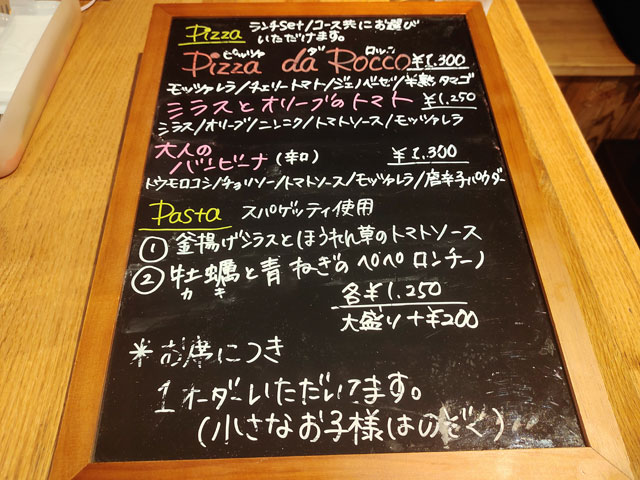 Pizza ランチset/コース共にお選び
いただけます。
ピッツァ ダ ロッコ
Pizza da Rocco ¥1,300
モッツァレラ/チェリートマト/ジェノベーゼ/半熟タマゴ
シラスとオリーブのトマト ¥1,250
シラス/オリーブ/ニンニク/トマトソース/モッツァレラ
大人の
バンビーナ (辛口) ¥1,300
トウモロコシ/チョリソー/トマトソース/モッツァレラ/唐辛子パウダー
Pasta スパゲッティ使用
① 釜揚げシラスとほうれん草のトマトソース
② 牡蠣と青ねぎのペペロンチーノ
カキ
各¥1,250
大盛り+¥200
*お席につき
1オーダーいただいてます。
(小さなお子様はのぞく)